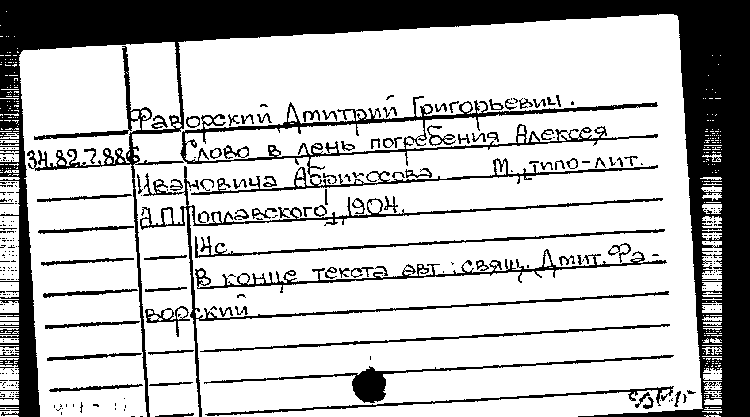 Фаворский, Дмитрий Григорьевич.
34.82.7.886. Слово в день погребения Алексея
Ивановича Абрикосова. М., типо-лит.
А.П.Поплавского, 1904.
14с.
В конце текста авт.: свящ. Дмит. Фа-
ворский.